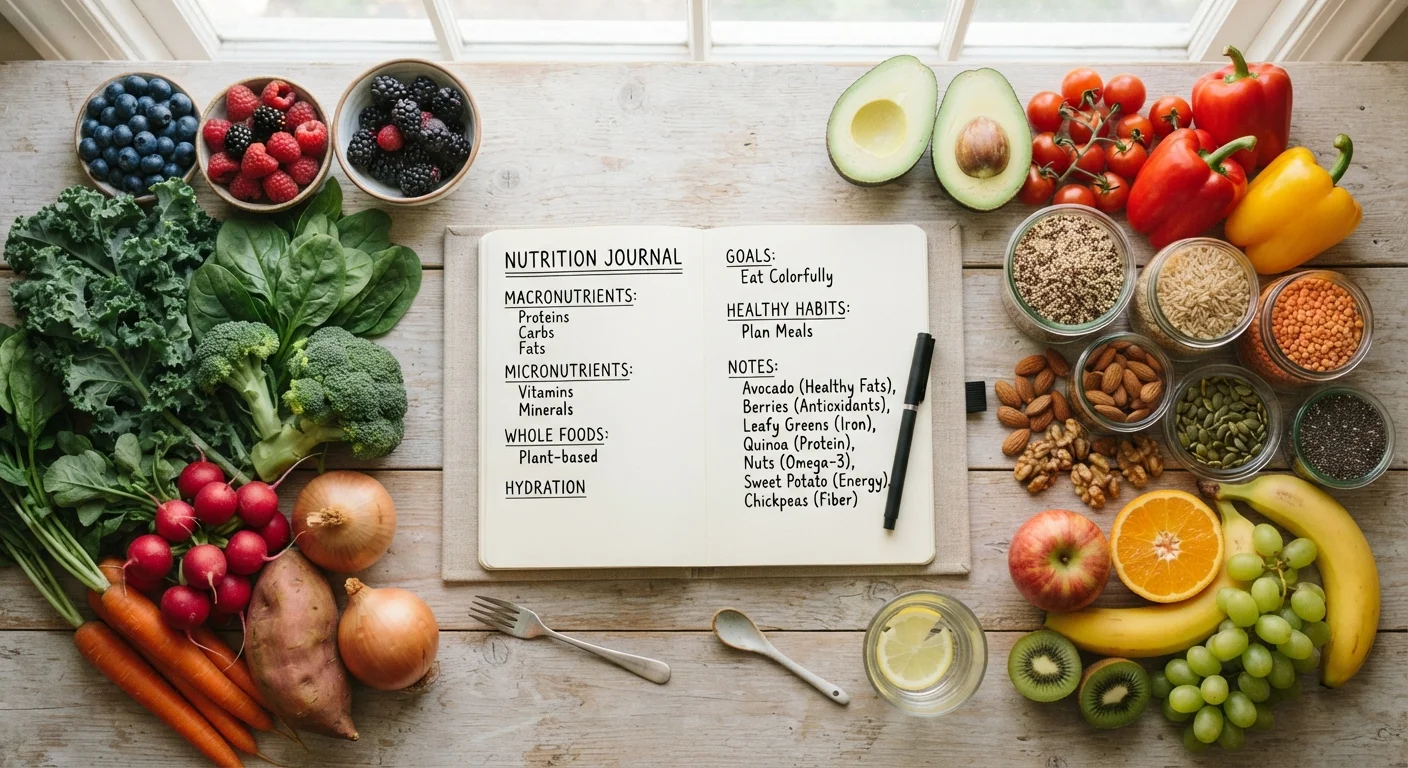 NUTRITION JOURNAL
MACRONUTRIENTS:
Proteins
Carbs
Fats
MICRONUTRIENTS:
Vitamins
Minerals
WHOLE FOODS:
Plant-based
HYDRATION
GOALS:
Eat Colorfully
HEALTHY HABITS:
Plan Meals
NOTES:
Avocado (Healthy Fats),
Berries (Antioxidants),
Leafy Greens (Iron),
Quinoa (Protein),
Nuts (Omega-3),
Sweet Potato (Energy),
Chickpeas (Fiber)